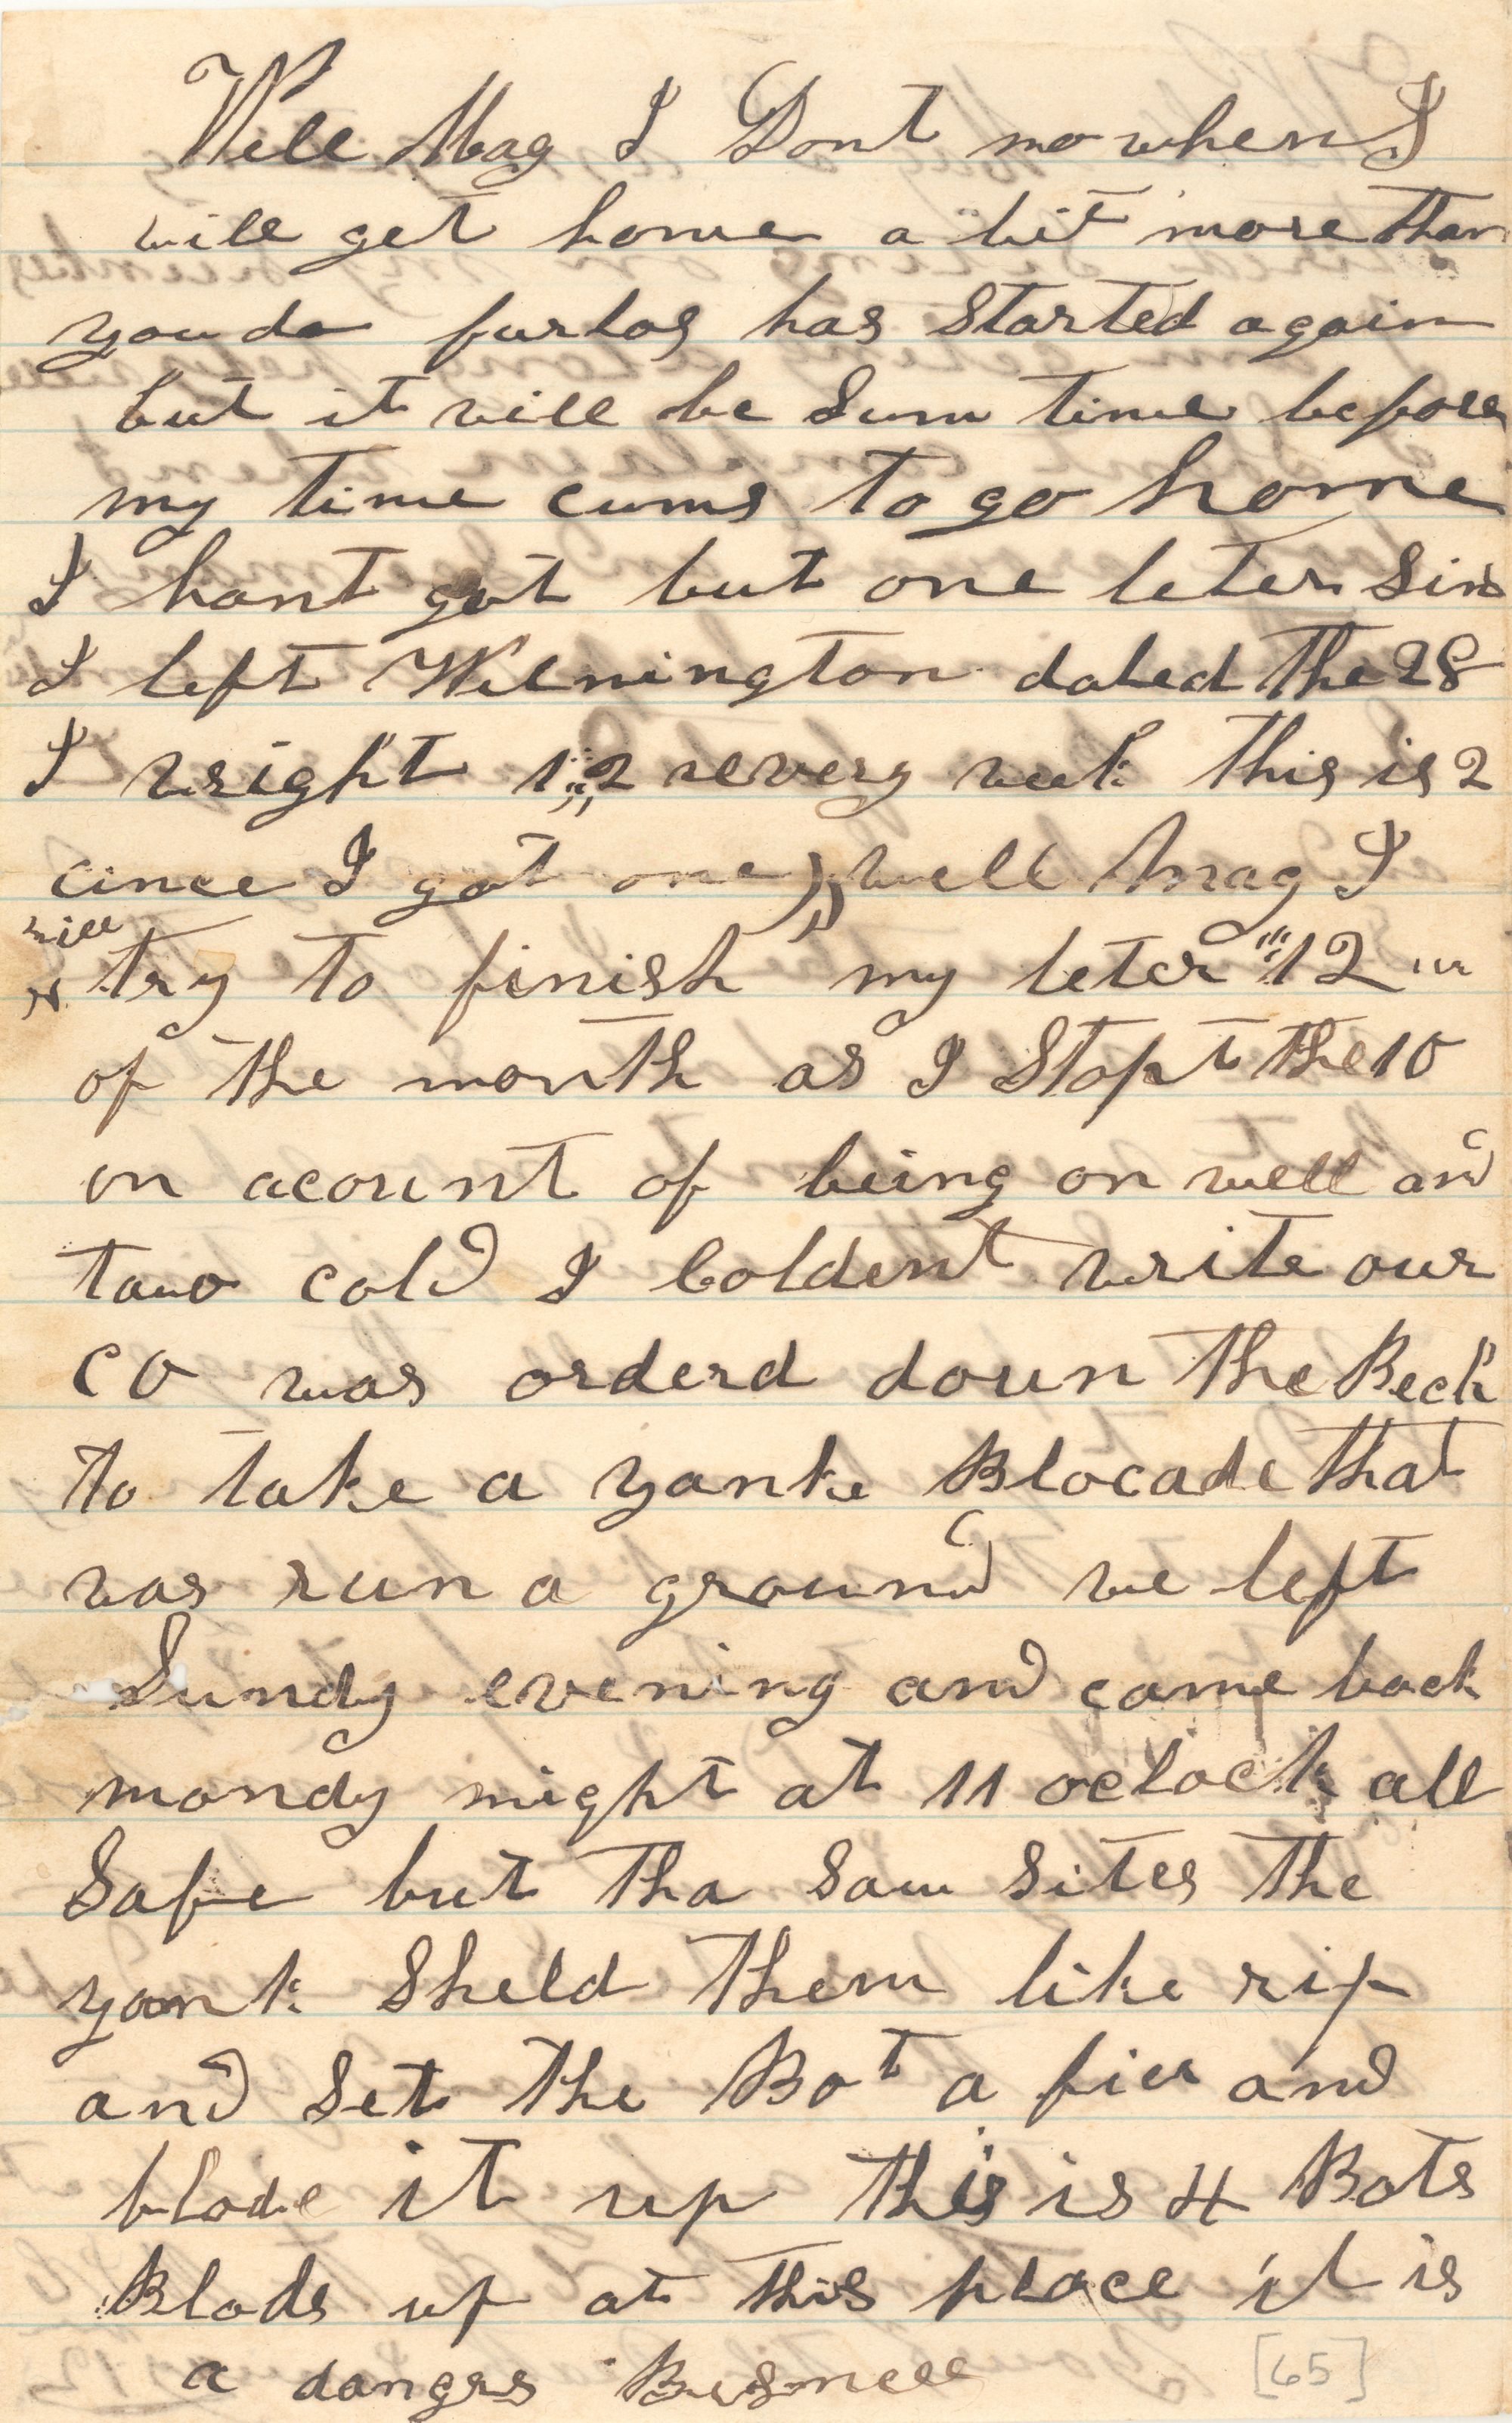 Well Mag I Dont no when I
will get home a bit more than
you do furlos has Started again
but it will be Sum time before
my time cums to go home
I hant got but one leter Sins
I left Wilmington dated the 28
I wright 1 "2 revery week this is 2
cince I got one well Mag I
will
try to finish my leter "12 "
of the month as I Stopt the 10
on acount of being on well and
tow cold I Coldent write our
CO was orderd doun the Bech
to take a yanke Blocade that
was run a ground we left
Sundy evening and came back
mondy night at 11 oclock all
Safe but tha Saw Sites the
yank Sheld them like rip
and Set the Bot a fier and
blode it up this is 4 Bots
Blode up at this place it is
a dangrs Bisness
[65]